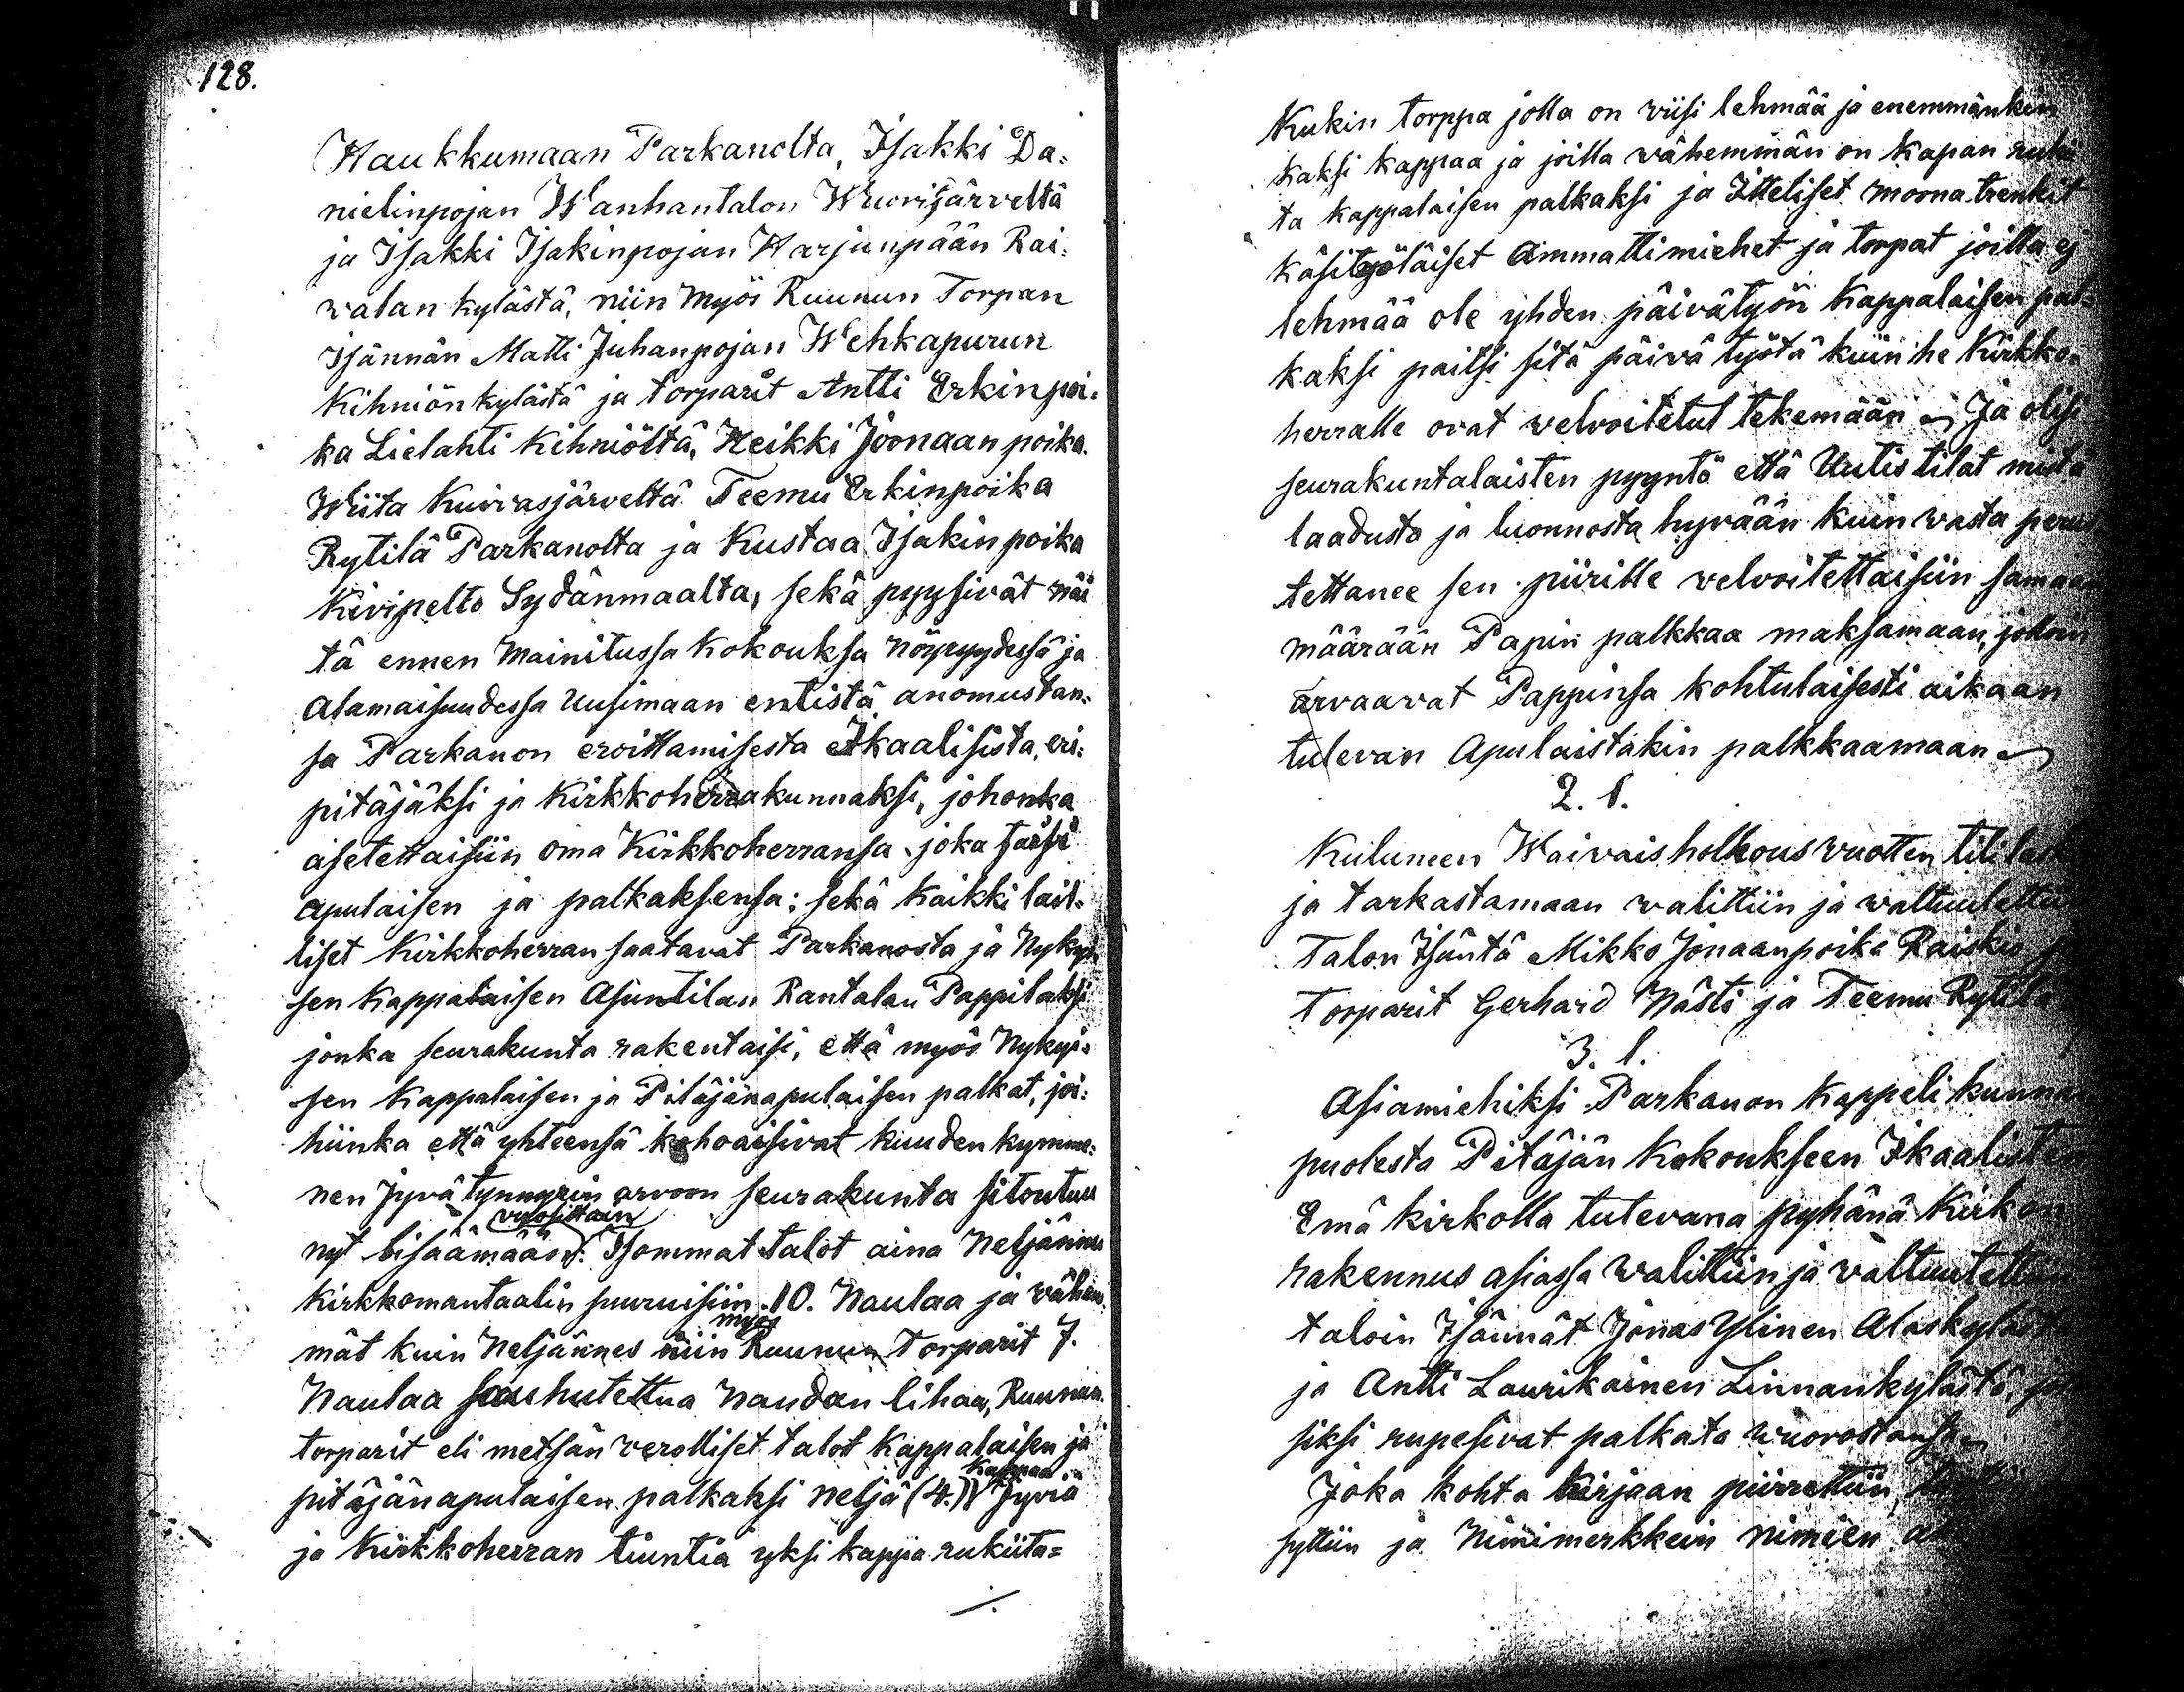 128.
Haukkumaan Parkanolta, Isakki Da=
nielinpojan Wanhantalon Wuorisjärveltä
ja Isakki Isakinpojan Harjunpään Rai=
walan kylästä, niin Myös Ruunun Torpan
Isännän Matti Juhanpojan Wehkapurun
Kihniön kylästä ja torparit Antti Erkinpoi=
ka Lielahti Kihniöltä, Heikki Joonaan poika
Wiita Kuivasjärveltä Teemu Erkinpoika
Rytilä Parkanolta ja Kustaa Isakin poika
Kivipelto Sydänmaalta, sekä pyysivät näi
tä ennen Mainitussa Kokouksa Nöyryydessä ja
Alamaisuudessa Uusimaan entistä anomustan=
sa Parkanon eroittamisesta Ikaalisista, eri=
pitäjäksi ja Kirkkoherrakunnaksi, johonka
asetettaisiin oma Kirkkoherransa joka saisi
apulaisen ja palkaksensa; sekä Kaikki lail=
liset Kirkkoherran saatavat Parkanosta ja Nykyi
sen Kappalaisen Asuntilan Rantalan Pappilaksi
jonka seurakunta rakentaisi, että myös Nykyi=
sen Kappalaisen ja Pitäjänapulaisen palkat, joi=
hiinka että yhteensä kohoaisivat kuuden kymme=
nen Jyvä tynnyrin arvoon seurakunta sitoutuu
vuosittain
nyt lisäämään: Isommat Talot aina Neljännes
Kirkkomantaalin suuruisiin 10. Naulaa ja vähem
myös
mät kuin Neljännes niin Ruunun Torparit 7.
Naulaa sauhutettua Naudan lihaa, Ruunun
torparit eli metsän verolliset talot Kappalaisen ja
Kappaa
pitäjänapulaisen palkaksi Neljä (4.) Jyviä
ja Kirkkoherran tiuntia yksi kappa rukiita=
Kukin torppa jolla on viisi lehmää ja enemmänkin
kaksi kappaa ja joilla vähemmän on Kapan
ta Kappalaisen palkaksi ja Itteliset moona trenkit
käsityöläiset Ammattimiehet ja torpat joilla ej
lehmää ole yhden päivätyön Kappalaisen pal=
kaksi paitsi sitä päivä työtä kuin he Kirkko=
herralle ovat velvoitetut tekemään Ja olisi
seurakuntalaisten pyyntö että Uutistilat mistä
laadusta ja luonnosta hyvään kuin vasta perus
tettanee sen piirille velvoitettaisiin samaan
määrään Papin palkkaa maksamaan, johon
arvaavat Pappinsa kohtulaisesti aikaan
tulevan Apulaistakin palkkaamaan
2. §.
Kuluneen Waivaisholhous vuotten tili
ja tarkastamaan walittiin ja waltuutettiin
Talon Isäntä Mikko Jonaanpoika Raiskio
Torparit Gerhard Nästi ja Teemu Rytilä
3. §.
Asiamiehiksi Parkanon Kappeli kunnan
puolesta Pitäjän Kokoukseen Ikaalisten
Emä kirkolla tulevana pyhänä Kirkon
rakennus asiassa walittiin ja waltuutettiin
taloin Isännät Jonas Ylinen Alaskylästä
ja Antti Laurikainen Linnankylästä
siksi rupesivat palkata wuorostansa
Joka kohta kirjaan piirrettiin,
syttiin ja Nimimerkkein nimien